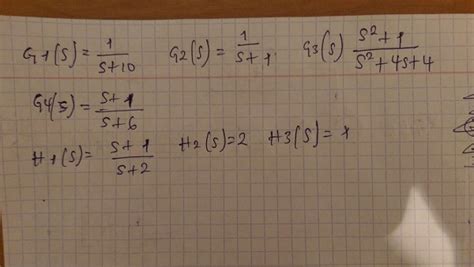 G1(s) = 1/(s+10) G2(s) = 1/(s+1) G3(s) (s²+1)/(s²+4s+4)
G4(s) = (s+1)/(s+6)
H1(s) = (s+1)/(s+2) H2(s)=2 H3(s)=1